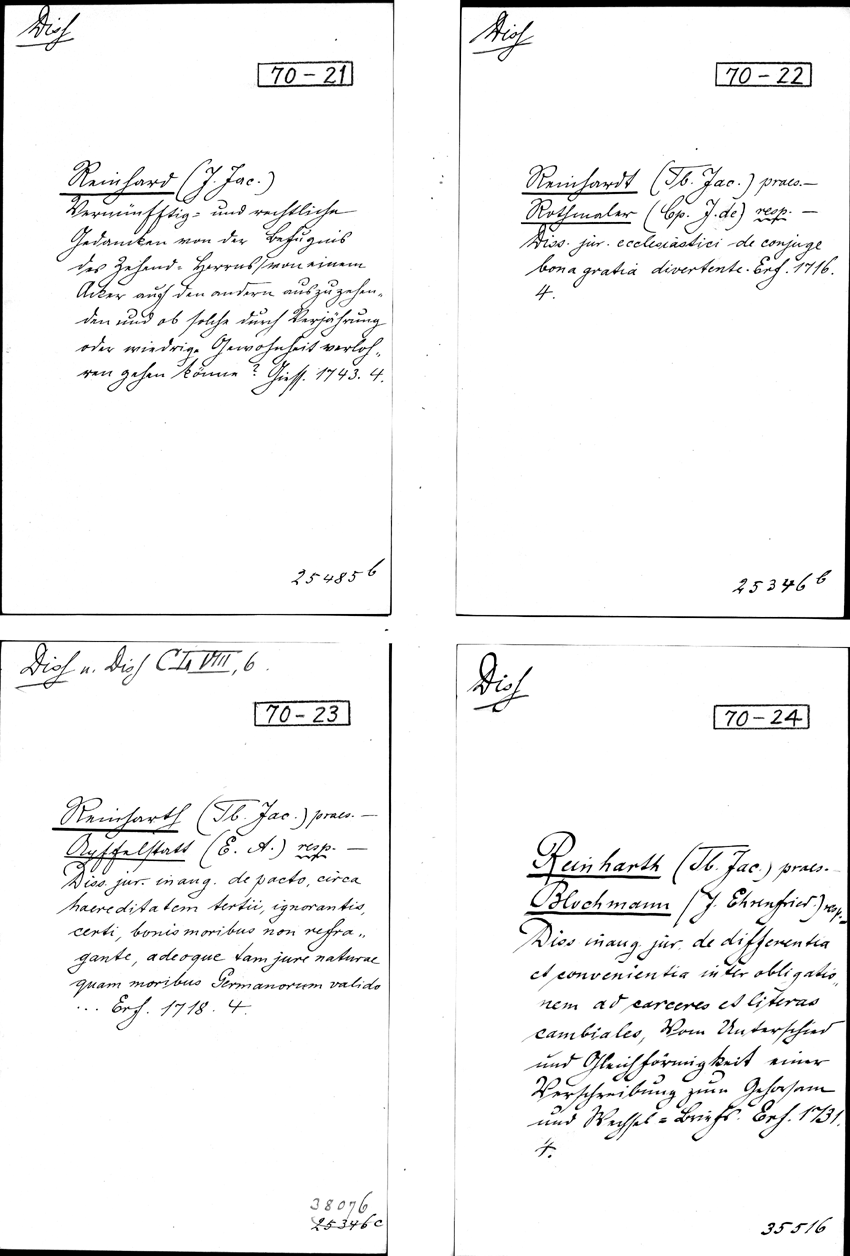 Diss
70-21
Reinhard (J. Jac.)
Vernünfftig- und rechtliche
Gedancken von der Befugnis
des Zehend-Herrns/von einem
Acker auf den andern auszuzehen-
den und ob solche durch Verjährung
oder wiedrige Gewohnheit verloh-
ren gehen könne? Giess. 1743. 4.
25485 b
Diss
70-22
Reinhardt (Tb. Jac.) praes.—
Rothmaler (Cp. J. de) resp. —
Diss. jur. ecclesiastici de conjuge
bona gratia divertente. Erf. 1716.
4.
25346 b
Diss u. Diss CLVIII, 6.
70-23
Reinharth (Tb. Jac.) praes.—
Apffelstatt (E. A.) resp. —
Diss. jur. inaug. de pacto, circa
haereditatem tertii, ignorantis,
certi, bonis moribus non refra-
gante, adeoque tam jure naturae
quam moribus Germanorum valido
... Erf. 1718. 4.
38076
25346 c
Diss
70-24
Reinharth (Tb. Jac.) praes.-
Blochmann (J. Ehrenfried.) resp.-
Diss inaug. jur. de differentia
et convenientia inter obligatio-
nem ad carceres et literas
cambiales, Vom Unterschied
und Gleichförmigkeit einer
Verschreibung zum Gehorsam
und Wechsel-Briefs. Erf. 1731.
4.
35516